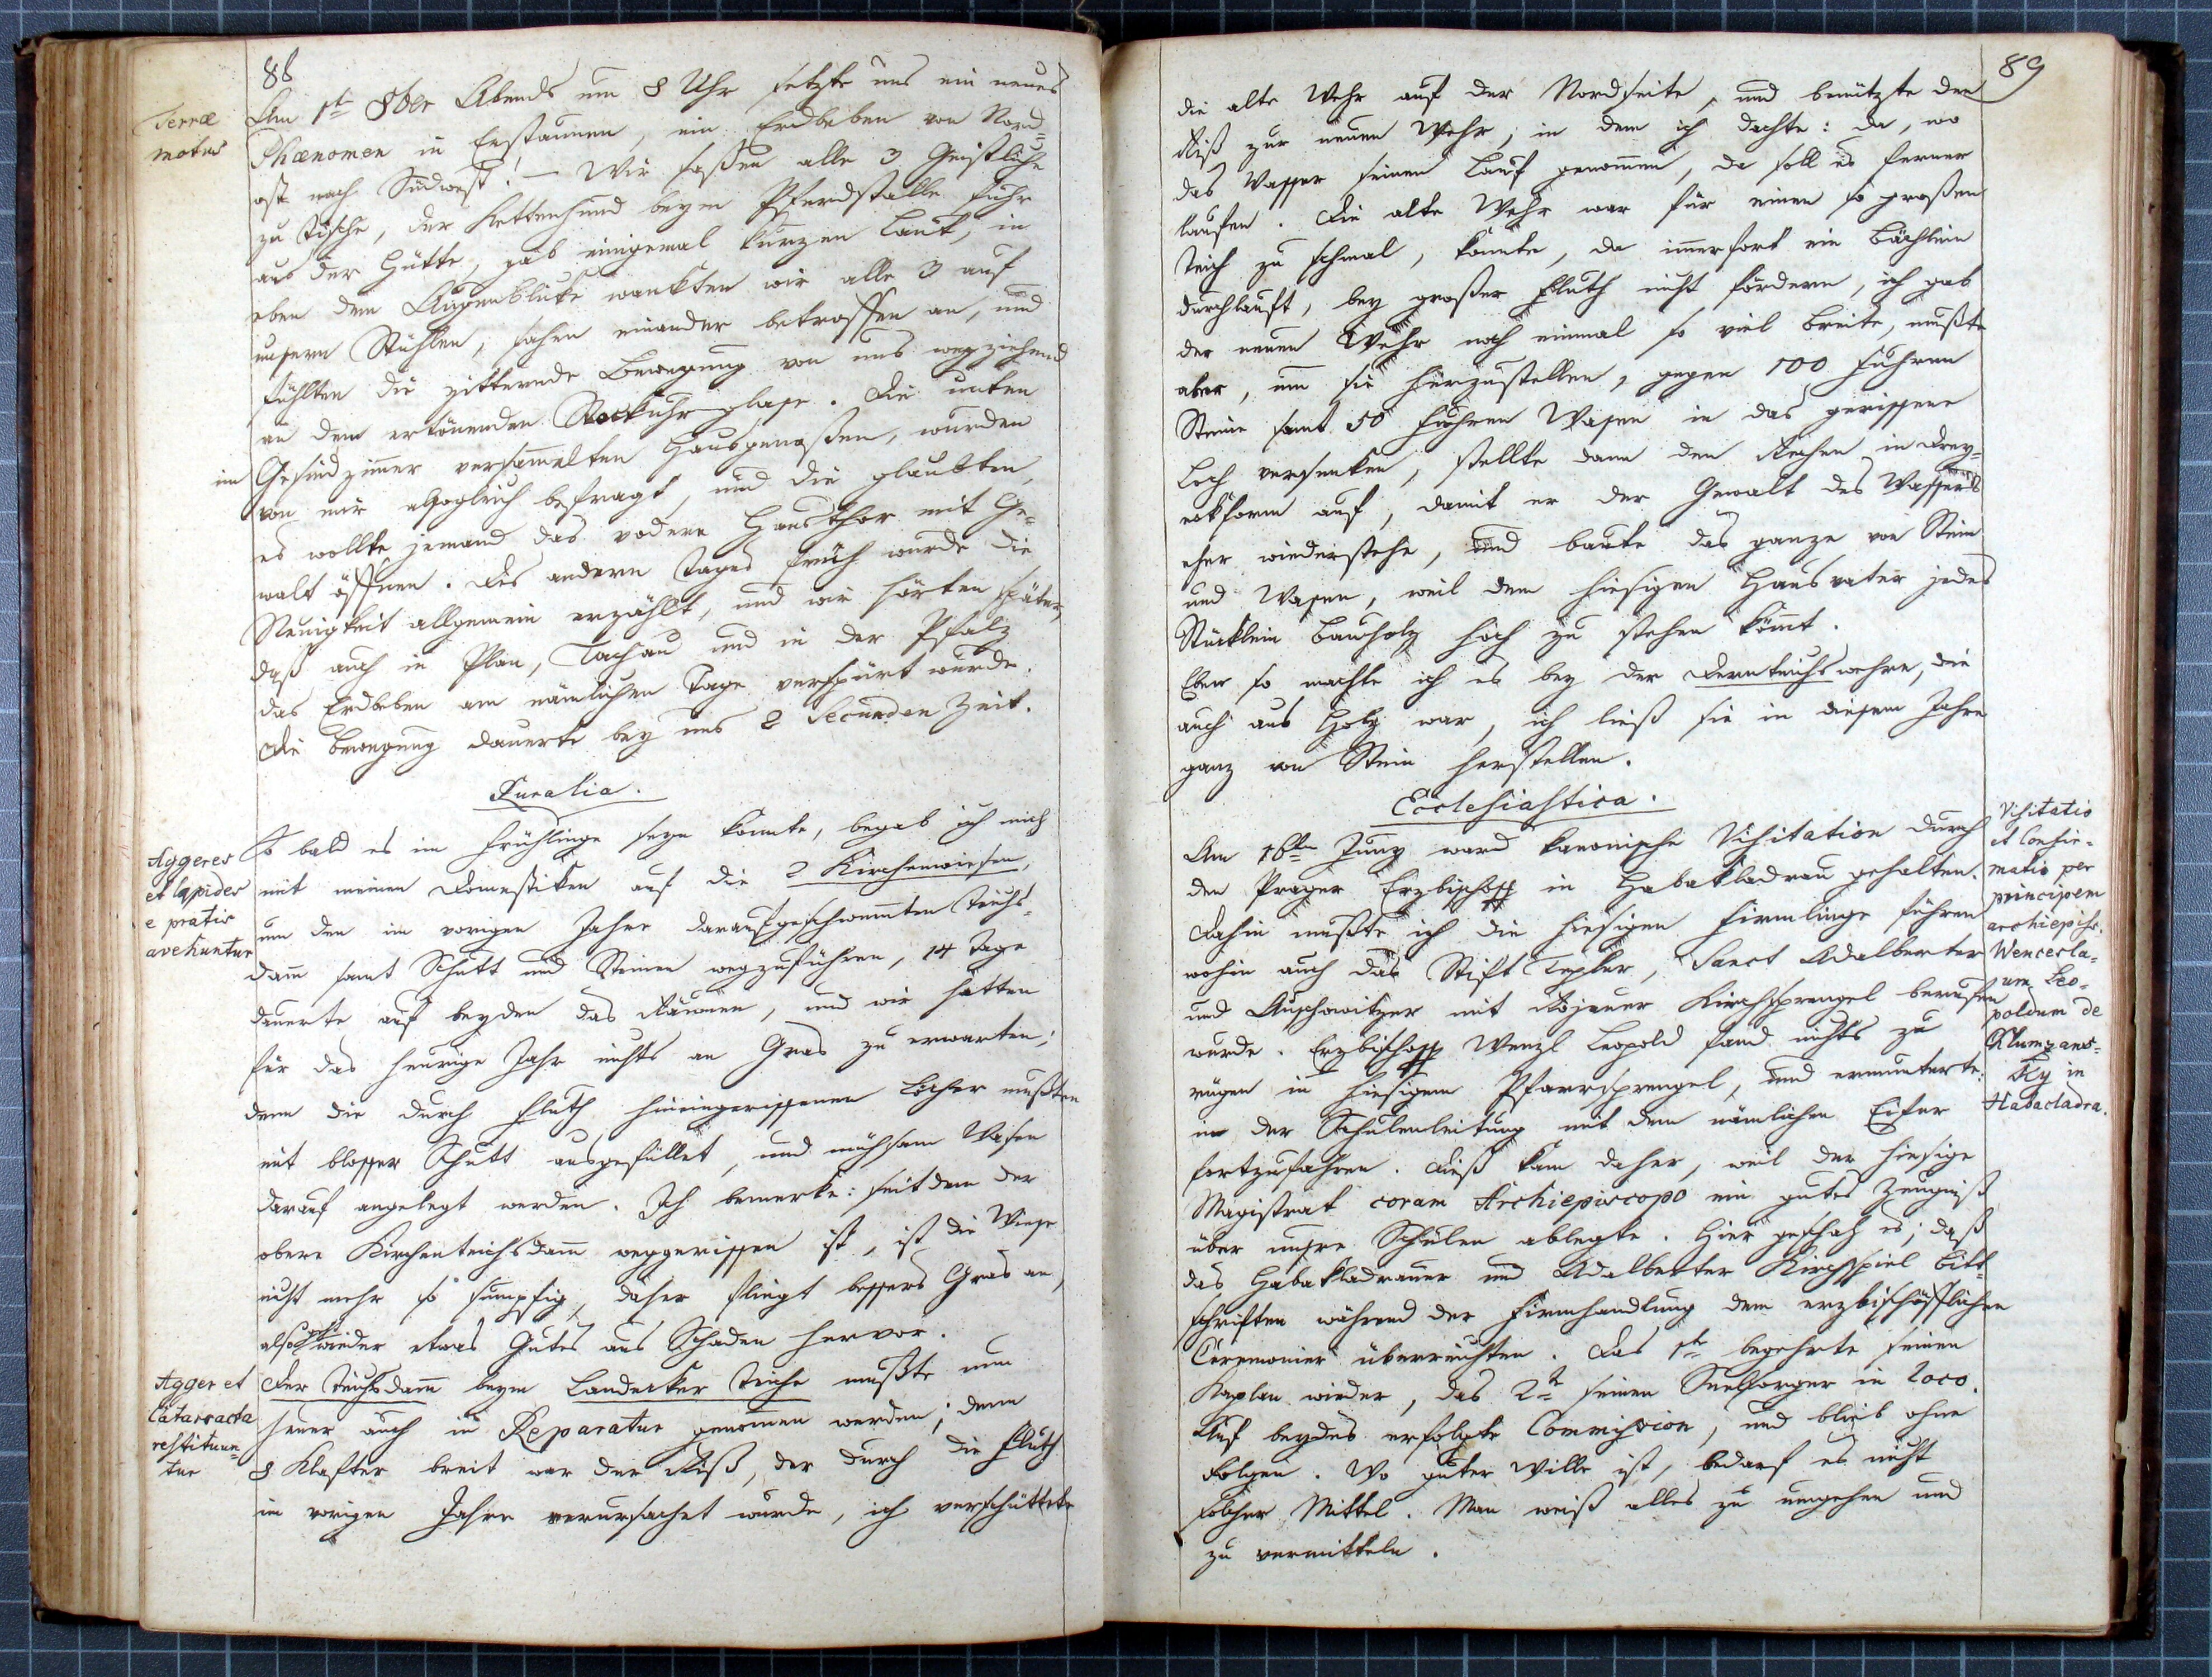 88
Terræ
motus
Am 1t 8ber Abends um 8 Uhr setzte uns ein neues
Phænomen in Erstaunen, ein Erdbeben von Nord-
ost nach Südwest! — Wir saßen alle 3 Geistliche
zu Tische, der Kettenhund beym Pferdstalle fuhr
aus der Hütte, gab einigemal kurzen Laut, in
eben dem Augenblicke wankten wir alle 3 auf
unsern Stühlen, sahen einander betroffen an, und
fühlten die zitternde Bewegung von uns wegziehend
an dem ertönenden Stockuhrglase. Die unten
im Gesindzimmer versammelten Hausgenoßen, wurden
von mir allsogleich befragt, und die glaubten,
es wollte jemand das vodere Hausthor mit Ge-
walt öffnen. Des andern Tages früh wurde die
Neuigkeit allgemein erzählt, und wir hörten später,
daß auch in Plan, Tachau und in der Pfalz
das Erdbeben am nämlichen Tage verspürt wurde.
Die Bewegung dauerte bey uns 2 Secunden Zeit.
Ruralia.
Aggeres
et lapides
e pratis
avehuntur
So bald es im Frühlinge seyn konnte, begab ich mich
mit meinen Domestiken auf die 2 Kirchenwiesen,
um den im vorigen Jahre daraufgeschwemmten Teichs-
damm samt Schutt und Steinen wegzuführen, 14 Tage
dauerte auf beyden das Räumen, und wir hatten
für das heurige Jahr nichts an Gras zu erwarten;
denn die durch Fluth hineingerissenen Löcher mußten
mit blosser Schutt ausgefüllet, und mühsam Wasen
darauf angelegt werden. Ich bemerke: seitdem der
obere Kirchenteichsdamm weggerissen ist, ist die Wiese
nicht mehr so sumpfig, daher fliegt bessers Gras an,
also geht wieder etwas Gutes aus Schaden hervor.
Agger et
Catarracta
restituun-
tur
Der Teichsdamm beym Landecker Teiche mußte nun
heuer auch in Reparatur genommen werden; denn
8 Klafter breit war der Riß, der durch die Fluth
im vorigen Jahre verursachet wurde, ich verschüttete
89
die alte Wehr auf der Nordseite, und benützte den
Riß zur neuen Wehr, in dem ich dachte: da, wo
das Wasser seinen Lauf genommen, da soll es ferner
laufen. Die alte Wehr war für einen so großen
Teich zu schmal, konnte, da immerfort ein Bächlein
durchlauft, bey großer Fluth nicht fördern, ich gab
der neuen Wehr noch einmal so viel Breite, mußte
aber, um sie herzustellen, gegen 100 Fuhren
Steine samt 50 Fuhren Wasen in das gerissene
Loch versenken, stellte dann den Rechen in Drey-
eckform auf, damit er der Gewalt des Wassers
eher wiederstehe, und baute das ganze von Stein
und Wasen, weil dem hiesigen Hausvater jedes
Stücklein Bauholz hoch zu stehen kömmt.
Eben so machte ich es bey der Fernteichswehre, die
auch aus Holz war, ich ließ sie in diesem Jahre
ganz von Stein herstellen.
Ecclesiastica.
Visitatio
et Confir-
matio per
principem
archiepisc.
Wencesla-
um Leo-
poldum de
Klumzans-
ky in
Habacladra.
Am 16ten Juny ward kanonische Visitation durch
den Prager Erzbischoff in Habakladrau gehalten.
Dahin mußte ich die hiesigen Firmlinge führen
wohin auch das Stift Tepler, Sanct Adalberter
und Auschowitzer mit Rojauer Kirchsprengel berufen
wurde. Erzbischoff Wenzl Leopold fand nichts zu
rügen in hiesigem Pfarrsprengel, und ermunterte:
in der Schulenleitung mit dem nämlichen Eifer
fortzufahren. Dieß kam daher, weil der hiesige
Magistrat coram Archiepiscopo ein gutes Zeugniß
über unsre Schulen ablegte. Hier geschah es; daß
das Habakladrauer und Adalberter Kirchspiel Bitt-
schriften während der Firmhandlung dem erzbischöfflichen
Ceremonier überreichten. Das 1te begehrte seinen
Kaplan wieder, das 2te seinen Seelsorger in loco.
Auf beydes erfolgte Commission, und blieb ohne
Folgen. Wo guter Wille ist, bedarf es nicht
solcher Mittel. Man weiß alles zu umgehen und
zu vermitteln.